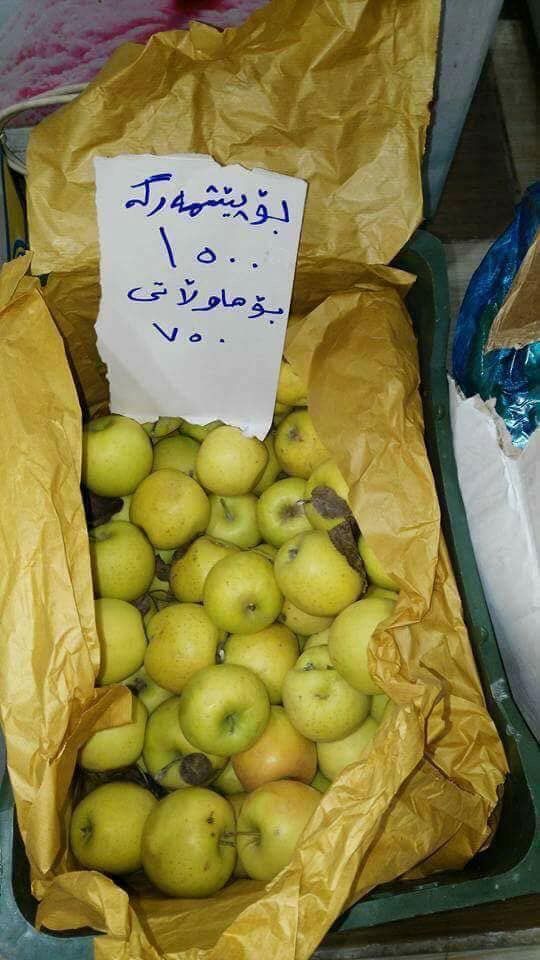 بۆ پێشمەرگە
١٥٠٠
بۆ هاوڵاتی
٧٥٠